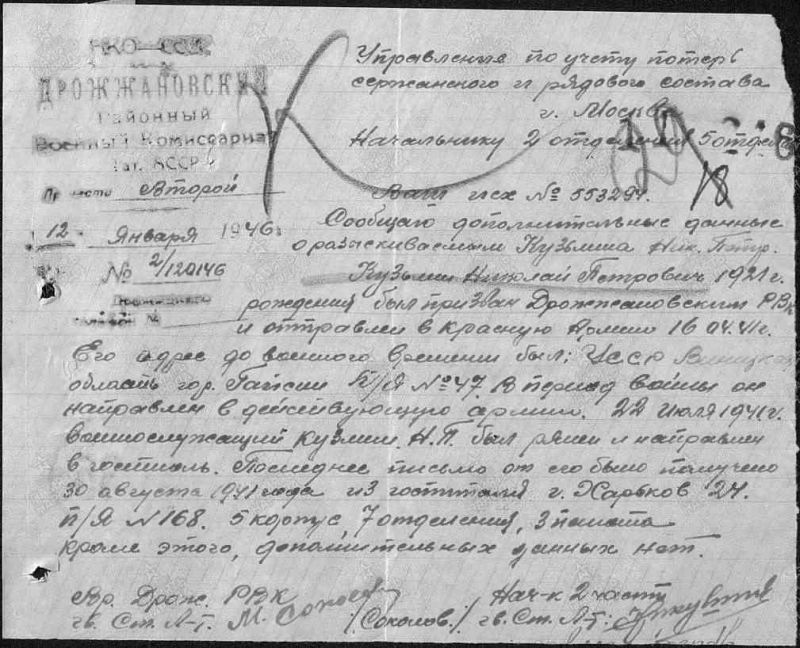 НКО–СССР
ДРОЖЖАНОВСКИЙ
Районный
Военный Комиссариат
Тат. АССР
Второй
12 Января 1946г
№ 2/120146
Управления по учету потерь
сержанского и рядового состава
г. Москва
Начальнику 2 отделения 5 отдела
29
18
Ваш исх № 553297.
Сообщаю дополнительные данные
о разыскиваемым Кузьмина Ник. Петр.
Кузьмин Николай Петрович 1921 г.
рождения был призван Дрожжановским РВК
и отправлен в Красную Армию 16.04.41г.
Его адрес до военного времени был: УССР Виницкая
область гор. Гайсин П/Я № 47. В период войны он
направлен в действующую армию. 22 июля 1941г.
военнослужащий Кузмин Н.П. был ранен и направлен
в госпиталь. Последнее письмо от его было получено
30 августа 1941 года из госпиталя г. Харьков 24.
п/я N 168. 5 корпус, 7 отделения, 3 палата
кроме этого, дополнительных данных нет.
Вр. Дрож. РВК
гв. Ст. Л-Т. М. Соколов /Соколов/
Нач-к 2 часть
гв. Ст. Л-Т: